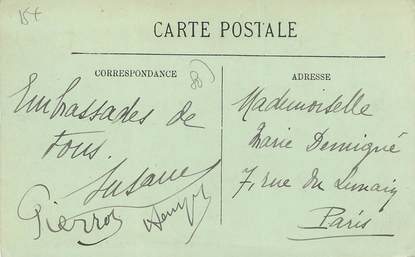 15+
CARTE POSTALE
CORRESPONDANCE
ADRESSE
88
Embrassades de
tous.
Susane
Pierrot
Mademoiselle
Marie Demigné
7, rue du Lunain
Paris